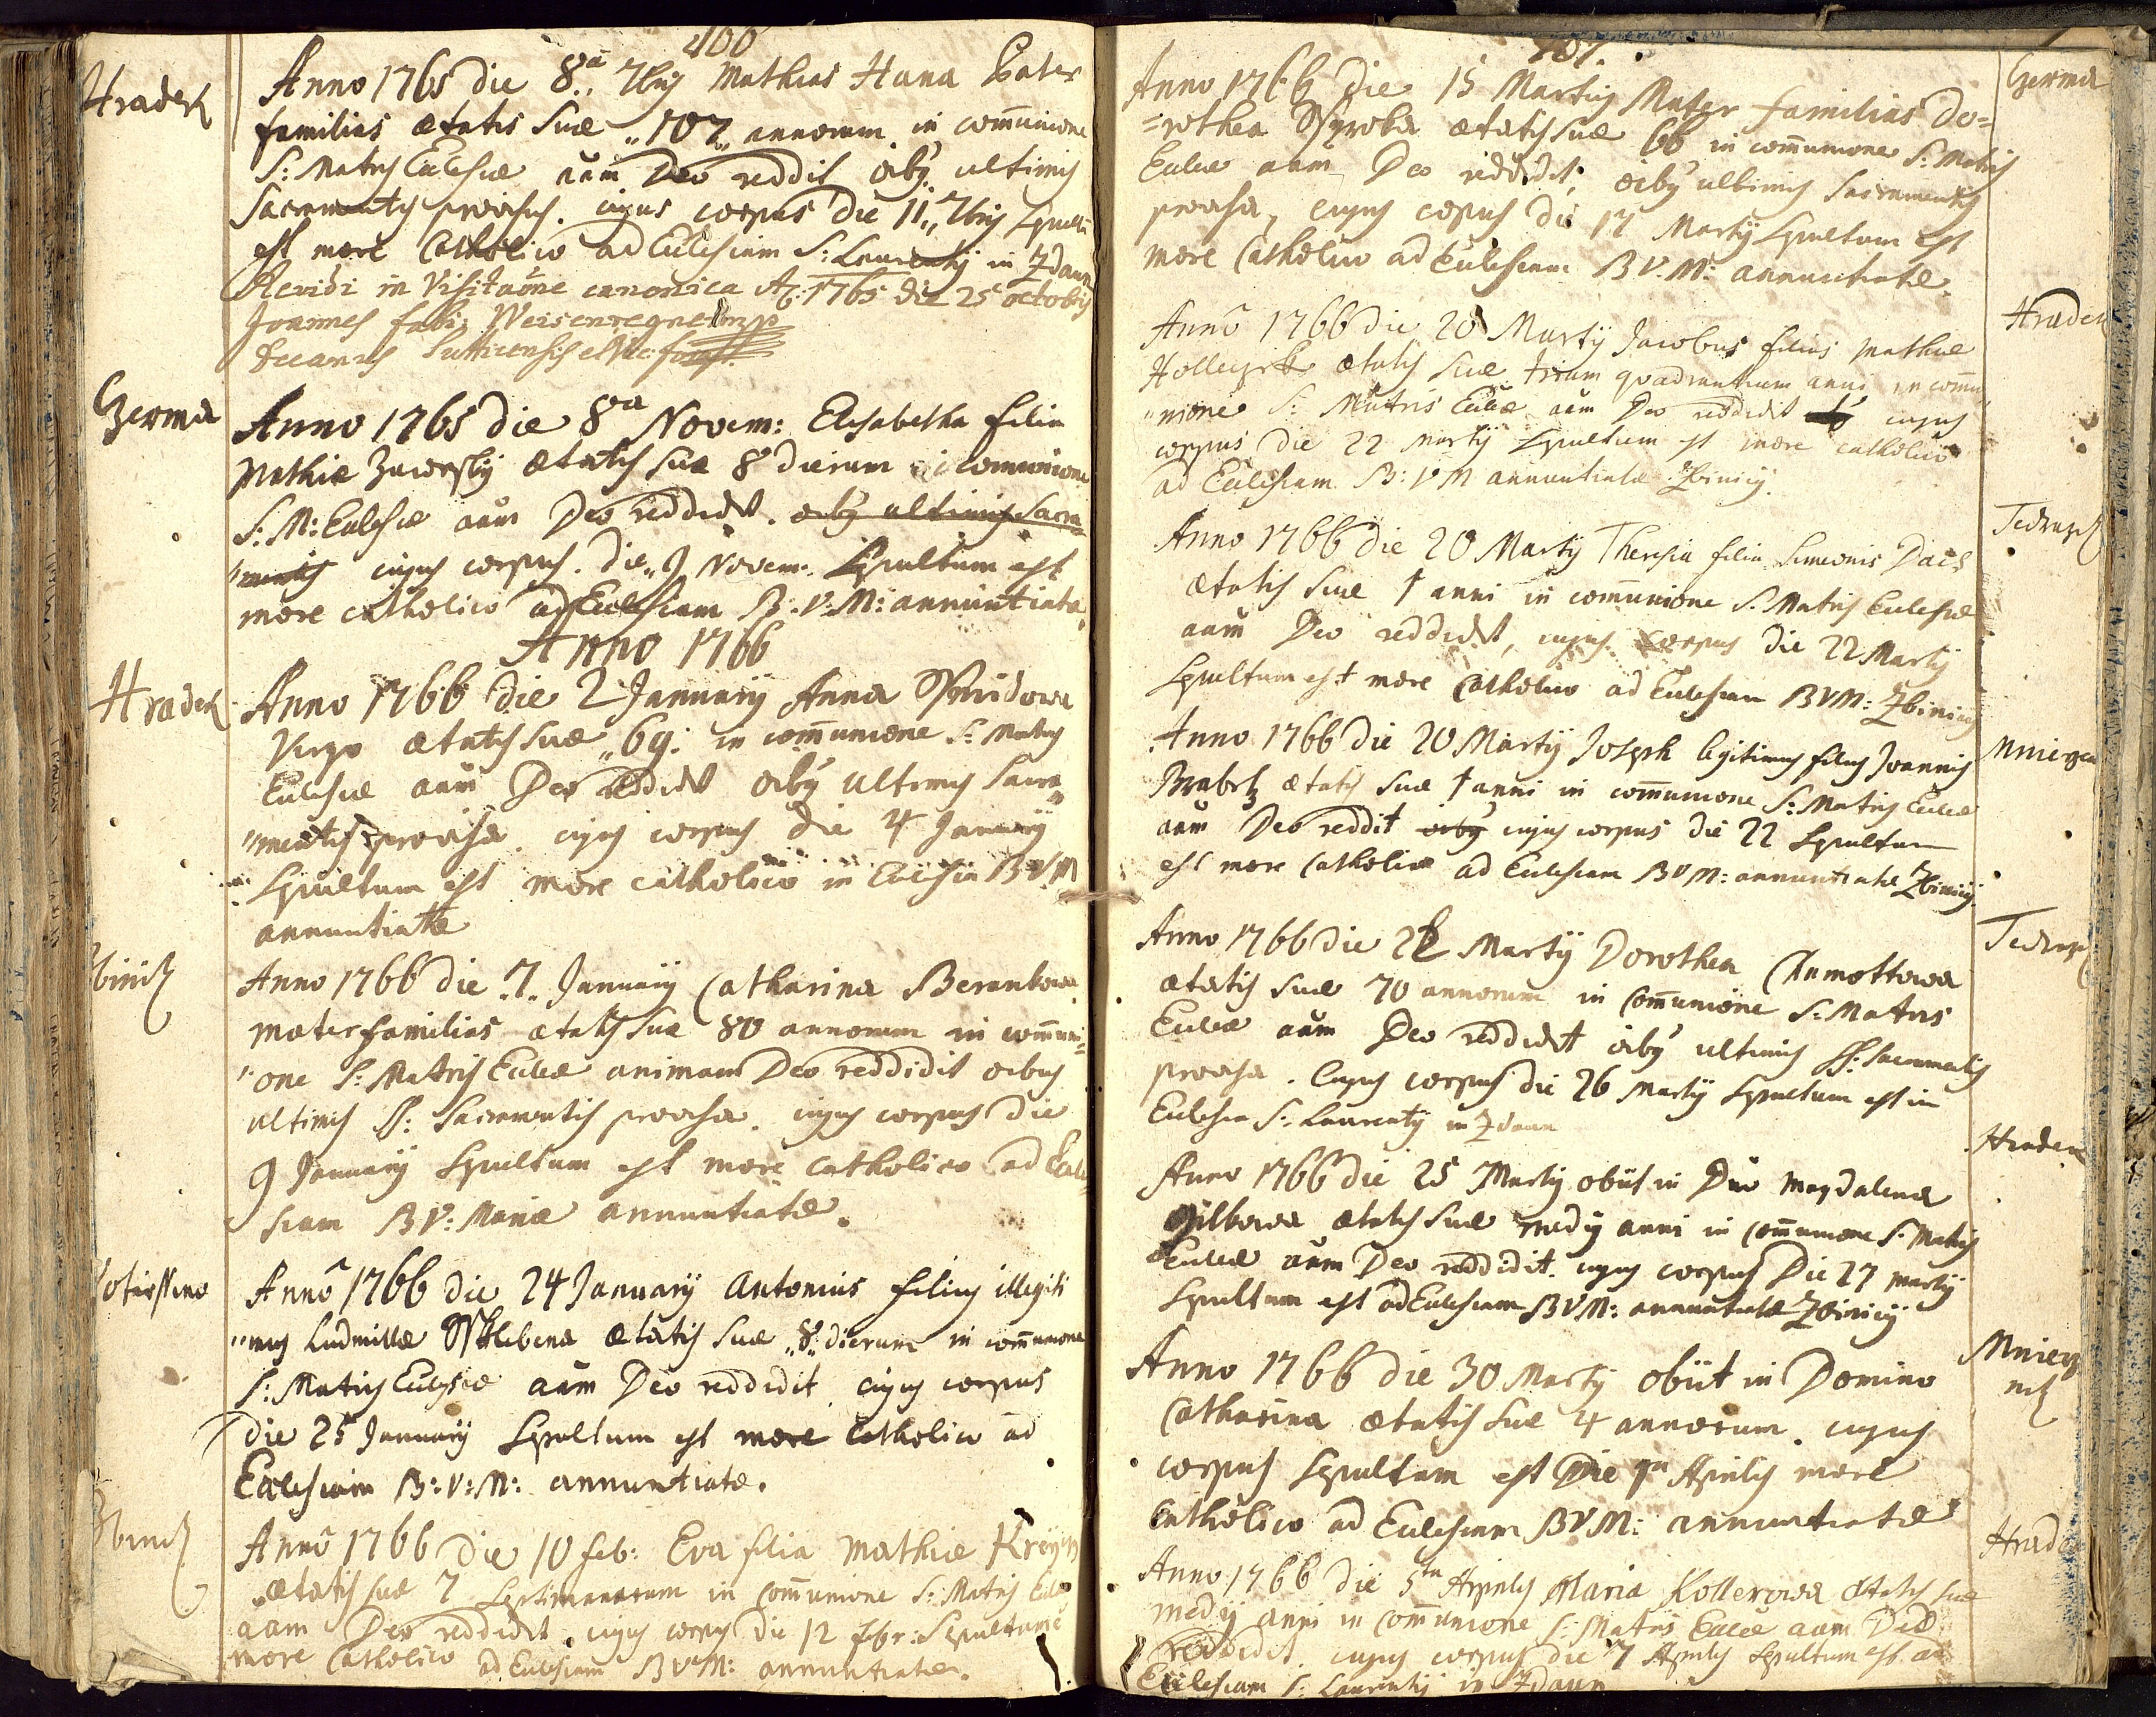 400
Hradek
Anno 1765 die 8a 7bris Mathias Hana Pater
familias ætatis suæ „107„ annorum in com̄unione
S: Matris Ecclesiæ aām Deo reddit oib9 ultimis
Sacramentis provisus. cujus corpus die 11„ 7bris Sepultū
est more Catholico ad Ecclesiam S: Laurentij in Zdaun
Revidi in Visitaōne canonica Aō: 1765 die 25 octobris
Joannes Weisenregner mp
Decanus Sutticensis et Vic: for:
Czerma
Anno 1765 die 8va Novem: Elisabetha filia
Mathiæ Zaworsky ætatis suæ 8 dierum i comunione
S: M: Eccl̄esiæ aām Deo reddidit. oib9 ultimis Sacra=
"mentis cujus corpus. die„ 9 Novem. Sepultum est
more catholico ad Ecclesiam B. V. M: annuntiatæ.
Anno 1766
Hradek
Anno 1766 die 2 January Anna
Virgo ætatis suæ „69: in com̄unione S: Matris
Ecclesiæ aām Deo reddidit oib9 ultimis Sacra„
"mentis provisa. cujus corpus die 4 January
Sepultum est more catholico in Ecclesia B V M
annuntiatæ
Anno 1766 die „7„ January Catharina Berankowa
mater familias ætatis suæ 80 annorum in com̄uni=
"one S: Matris Eccl̄æ animam Deo reddidit oibus
ultimis SS: Sacramentis provisa. cujus corpus die
9 January Sepultum est more catholico ad Eccle=
siam B V: Mariæ annuntiatæ.
Anno 1766 die 24 January Antonius filius illegiti
"mus Ludmillæ ætatis suæ „8„ dierum in com̄unione
S: Matris Ecclesiæ aām Deo reddidit cujus corpus
die 25 January Sepultum est more Catholico ad
Ecclesiam B: V: M: annuntiatæ.
Anno 1766 die 10 feb: Eva filia Mathiæ
ætatis suæ 7 Septimanarum in com̄unione S: Matris Eccl̄æ
aām Deo reddidit. cujus corpus die 12 febr: Sepultum ē
more Catholico ad Ecclesiam B V M: annuntiatæ.
401.
Czerma
Anno 1766 die 15 Martij Mater familias Do=
=rothea ætatis suæ 66 in com̄unione S: Matris
Eccl̄æ aām Deo reddidit, oib9 ultimis Sacramentis
provisa, cujus corpus die 17 Martij Sepultum est
more Catholico ad Ecclesiam B V. M: annuntiatæ.
Hradek
Anno 1766 die 20 Martij Jacobus filius Mathiæ
ætatis suæ trium quadrantium anni in com̄u
"nione S: Matris Eccl̄æ aām Deo reddidit cujus
corpus die 22 Martij Sepultum est more catholico
ad Ecclesiam B: V M annuntiatæ Zbinicij.
Anno 1766 die 20 Martij Theresia filia Simeonis
ætatis suæ 1 anni in com̄unione S. Matris Ecclesiæ
aām Deo reddidit, cujus corpus die 22 Martij
Sepultum est more Catholico ad Ecclesiam B V M: Zbinicij
Anno 1766 die 20 Martij Joseph legitimus filius Joannis
ætatis suæ 1 anni in com̄unione S: Matris Eccl̄æ
aām Deo reddit oib9 cujus corpus die 22 Sepultum
est more Catholico ad Ecclesiam B V M: annuntiatæ Zbinicij
Anno 1766 die Martij Dorothea
ætatis suæ 70 annorum in Com̄unione S: Matris
Eccl̄æ aām Deo reddidit oib9 ultimis SS: Sacramentis
provisa. Cujus corpus die 26 Martij Sepultum est in
Ecclesia S: Laurentij in Zdaun
Hradek
Anno 1766 die 25 Martij obiit in Dno Magdalena
ætatis suæ medij anni in Com̄unione S. Matris
Eccl̄æ aām Deo reddidit. cujus corpus Die 27 Martij
Sepultum est ad Ecclesiam B V M: annuntiatæ Zbinicij
Anno 1766 die 30 Martij obiit in Domino
Catharina ætatis suæ 4 annorum. cujus
corpus Sepultum est Die Aprilis more
Catholico ad Ecclesiam B V M: annuntiatæ
Hrade
Anno 1766 die 5ta Aprilis Maria Kollerowa ætatis suæ
medij anni in com̄unione S: Matris Eccl̄æ aām Deo
reddidit. cujus corpus die 7 Aprilis Sepultum est ad
Ecclesiam S: Laurentij in Zdaun